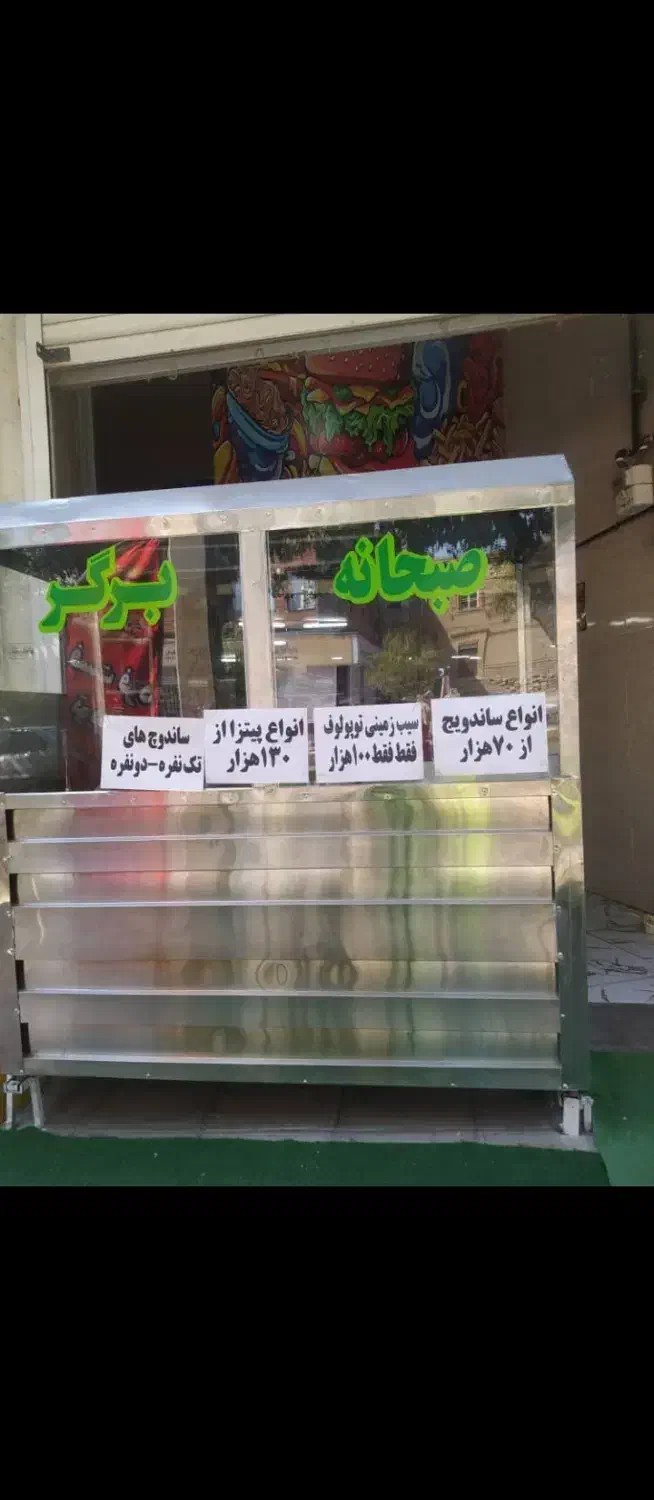 صبحانه
برگر
انواع ساندویچ
از ۷۰هزار
سیب زمینی توپولوف
فقط فقط ۱۰۰هزار
انواع پیتزا از
۱۳۰هزار
ساندوچ های
تک نفره-دونفره